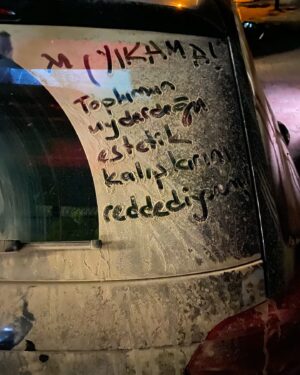 YIKAMA!
Toplumun
uydurduğu
estetik
kalıplarını
reddediyorum